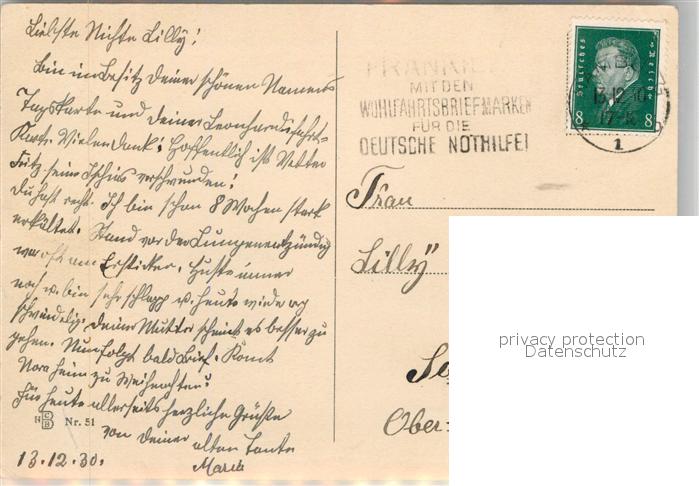 Liebste Nichte Lilly!
Bin im Besitz Deiner schönen Namens
Tagskarte und Deiner Leonhardifahrt-
Karte. Vielen Dank! Hoffentlich ist Vetter
Fritz seine Ischias verschwunden!
Du hast recht. Ich bin schon 8 Wochen stark
erkältet. Stand vor der Lungenentzündig
war oft am Ersticken. Huste immer
noch u. bin sehr schlapp u. heute wieder arg
schwindelig. Deiner Mutter scheint es besser zu
gehen. Nun folgt bald Brief. Kommt
Nora heim zu Weihnachten?
Für heute allerseits herzliche Grüße
von Deiner alten Tante
13.12.30.
H C B Nr. 51
FRANKIE
MIT DEN
WOHLFAHRTSBRIEFMARKEN
FÜR DIE
DEUTSCHE NOTHILFE!
Deutsches Reich
8 8
13.12.30
17-18
1
Frau
"Lilly"
Ober-
privacy protection
Datenschutz